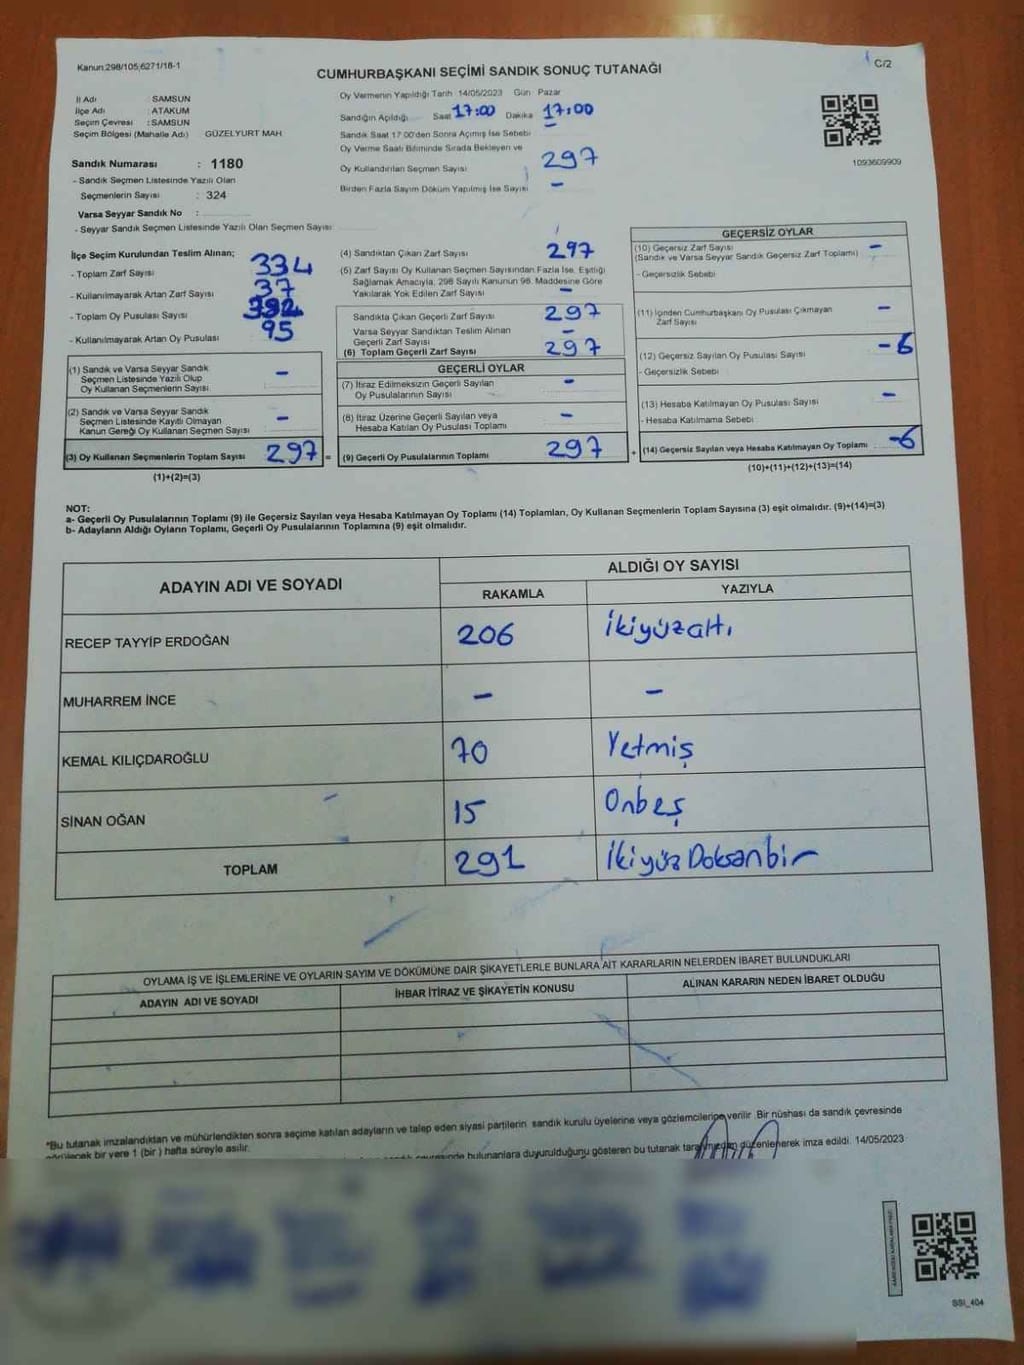 Kanun:298/105;6271/18-1
C/2
CUMHURBAŞKANI SEÇİMİ SANDIK SONUÇ TUTANAĞI
İl Adı : SAMSUN
İlçe Adı : ATAKUM
Seçim Çevresi : SAMSUN
Seçim Bölgesi (Mahalle Adı) GÜZELYURT MAH
Sandık Numarası : 1180
- Sandık Seçmen Listesinde Yazılı Olan
Seçmenlerin Sayısı : 324
Varsa Seyyar Sandık No :
- Seyyar Sandık Seçmen Listesinde Yazılı Olan Seçmen Sayısı
Oy Vermenin Yapıldığı Tarih 14/05/2023 Gün Pazar
Sandığın Açıldığı Saat 17:00 Dakika 17:00
Sandık Saat 17.00'den Sonra Açımış İse Sebebi –
Oy Verme Saati Bitiminde Sırada Bekleyen ve
Oy Kullandırılan Seçmen Sayısı 297
Birden Fazla Sayım Döküm Yapılmış İse Sayısı –
1093609909
İlçe Seçim Kurulundan Teslim Alınan;
- Toplam Zarf Sayısı 334
- Kullanılmayarak Artan Zarf Sayısı 37
- Toplam Oy Pusulası Sayısı
- Kullanılmayarak Artan Oy Pusulası 95
(1) Sandık ve Varsa Seyyar Sandık
Seçmen Listesinde Yazılı Olup
Oy Kullanan Seçmenlerin Sayısı –
(2) Sandık ve Varsa Seyyar Sandık
Seçmen Listesinde Kayıtlı Olmayan
Kanun Gereği Oy Kullanan Seçmen Sayısı –
(3) Oy Kullanan Seçmenlerin Toplam Sayısı 297 =
(1)+(2)=(3)
(4) Sandıktan Çıkan Zarf Sayısı 297
(5) Zarf Sayısı Oy Kullanan Seçmen Sayısından Fazla İse, Eşitliği
Sağlamak Amacıyla; 298 Sayılı Kanunun 98. Maddesine Göre
Yakılarak Yok Edilen Zarf Sayısı –
Sandıkta Çıkan Geçerli Zarf Sayısı 297
Varsa Seyyar Sandıktan Teslim Alınan
Geçerli Zarf Sayısı –
(6) Toplam Geçerli Zarf Sayısı 297
GEÇERLİ OYLAR
(7) İtiraz Edilmeksizin Geçerli Sayılan
Oy Pusulalarının Sayısı –
(8) İtiraz Üzerine Geçerli Sayılan veya
Hesaba Katılan Oy Pusulası Toplamı –
(9) Geçerli Oy Pusulalarının Toplamı 297 +
GEÇERSİZ OYLAR
(10) Geçersiz Zarf Sayısı
(Sandık ve Varsa Seyyar Sandık Geçersiz Zarf Toplamı) –
- Geçersizlik Sebebi
(11) İçinden Cumhurbaşkanı Oy Pusulası Çıkmayan
Zarf Sayısı –
(12) Geçersiz Sayılan Oy Pusulası Sayısı -6
- Geçersizlik Sebebi
(13) Hesaba Katılmayan Oy Pusulası Sayısı –
- Hesaba Katılmama Sebebi
(14) Geçersiz Sayılan veya Hesaba Katılmayan Oy Toplamı -6
(10)+(11)+(12)+(13)=(14)
NOT:
a- Geçerli Oy Pusulalarının Toplamı (9) ile Geçersiz Sayılan veya Hesaba Katılmayan Oy Toplamı (14) Toplamları, Oy Kullanan Seçmenlerin Toplam Sayısına (3) eşit olmalıdır. (9)+(14)=(3)
b- Adayların Aldığı Oyların Toplamı, Geçerli Oy Pusulalarının Toplamına (9) eşit olmalıdır.
ADAYIN ADI VE SOYADI
ALDIĞI OY SAYISI
RAKAMLA YAZIYLA
RECEP TAYYİP ERDOĞAN 206 İkiyüzaltı
MUHARREM İNCE – –
KEMAL KILIÇDAROĞLU 70 Yetmiş
SİNAN OĞAN 15 Onbeş
TOPLAM 291 İkiyüzDoksanbir
OYLAMA İŞ VE İŞLEMLERİNE VE OYLARIN SAYIM VE DÖKÜMÜNE DAİR ŞİKAYETLERLE BUNLARA AİT KARARLARIN NELERDEN İBARET BULUNDUKLARI
ADAYIN ADI VE SOYADI İHBAR İTİRAZ VE ŞİKAYETİN KONUSU ALINAN KARARIN NEDEN İBARET OLDUĞU
*Bu tutanak imzalandıktan ve mühürlendikten sonra seçime katılan adayların ve talep eden siyasi partilerin sandık kurulu üyelerine veya gözlemcilerine verilir. Bir nüshası da sandık çevresinde
görülecek bir yere 1 (bir) hafta süreyle asılır.
bulunanlara duyurulduğunu gösteren bu tutanak tarafımızdan düzenlenerek imza edildi. 14/05/2023
SSI_404